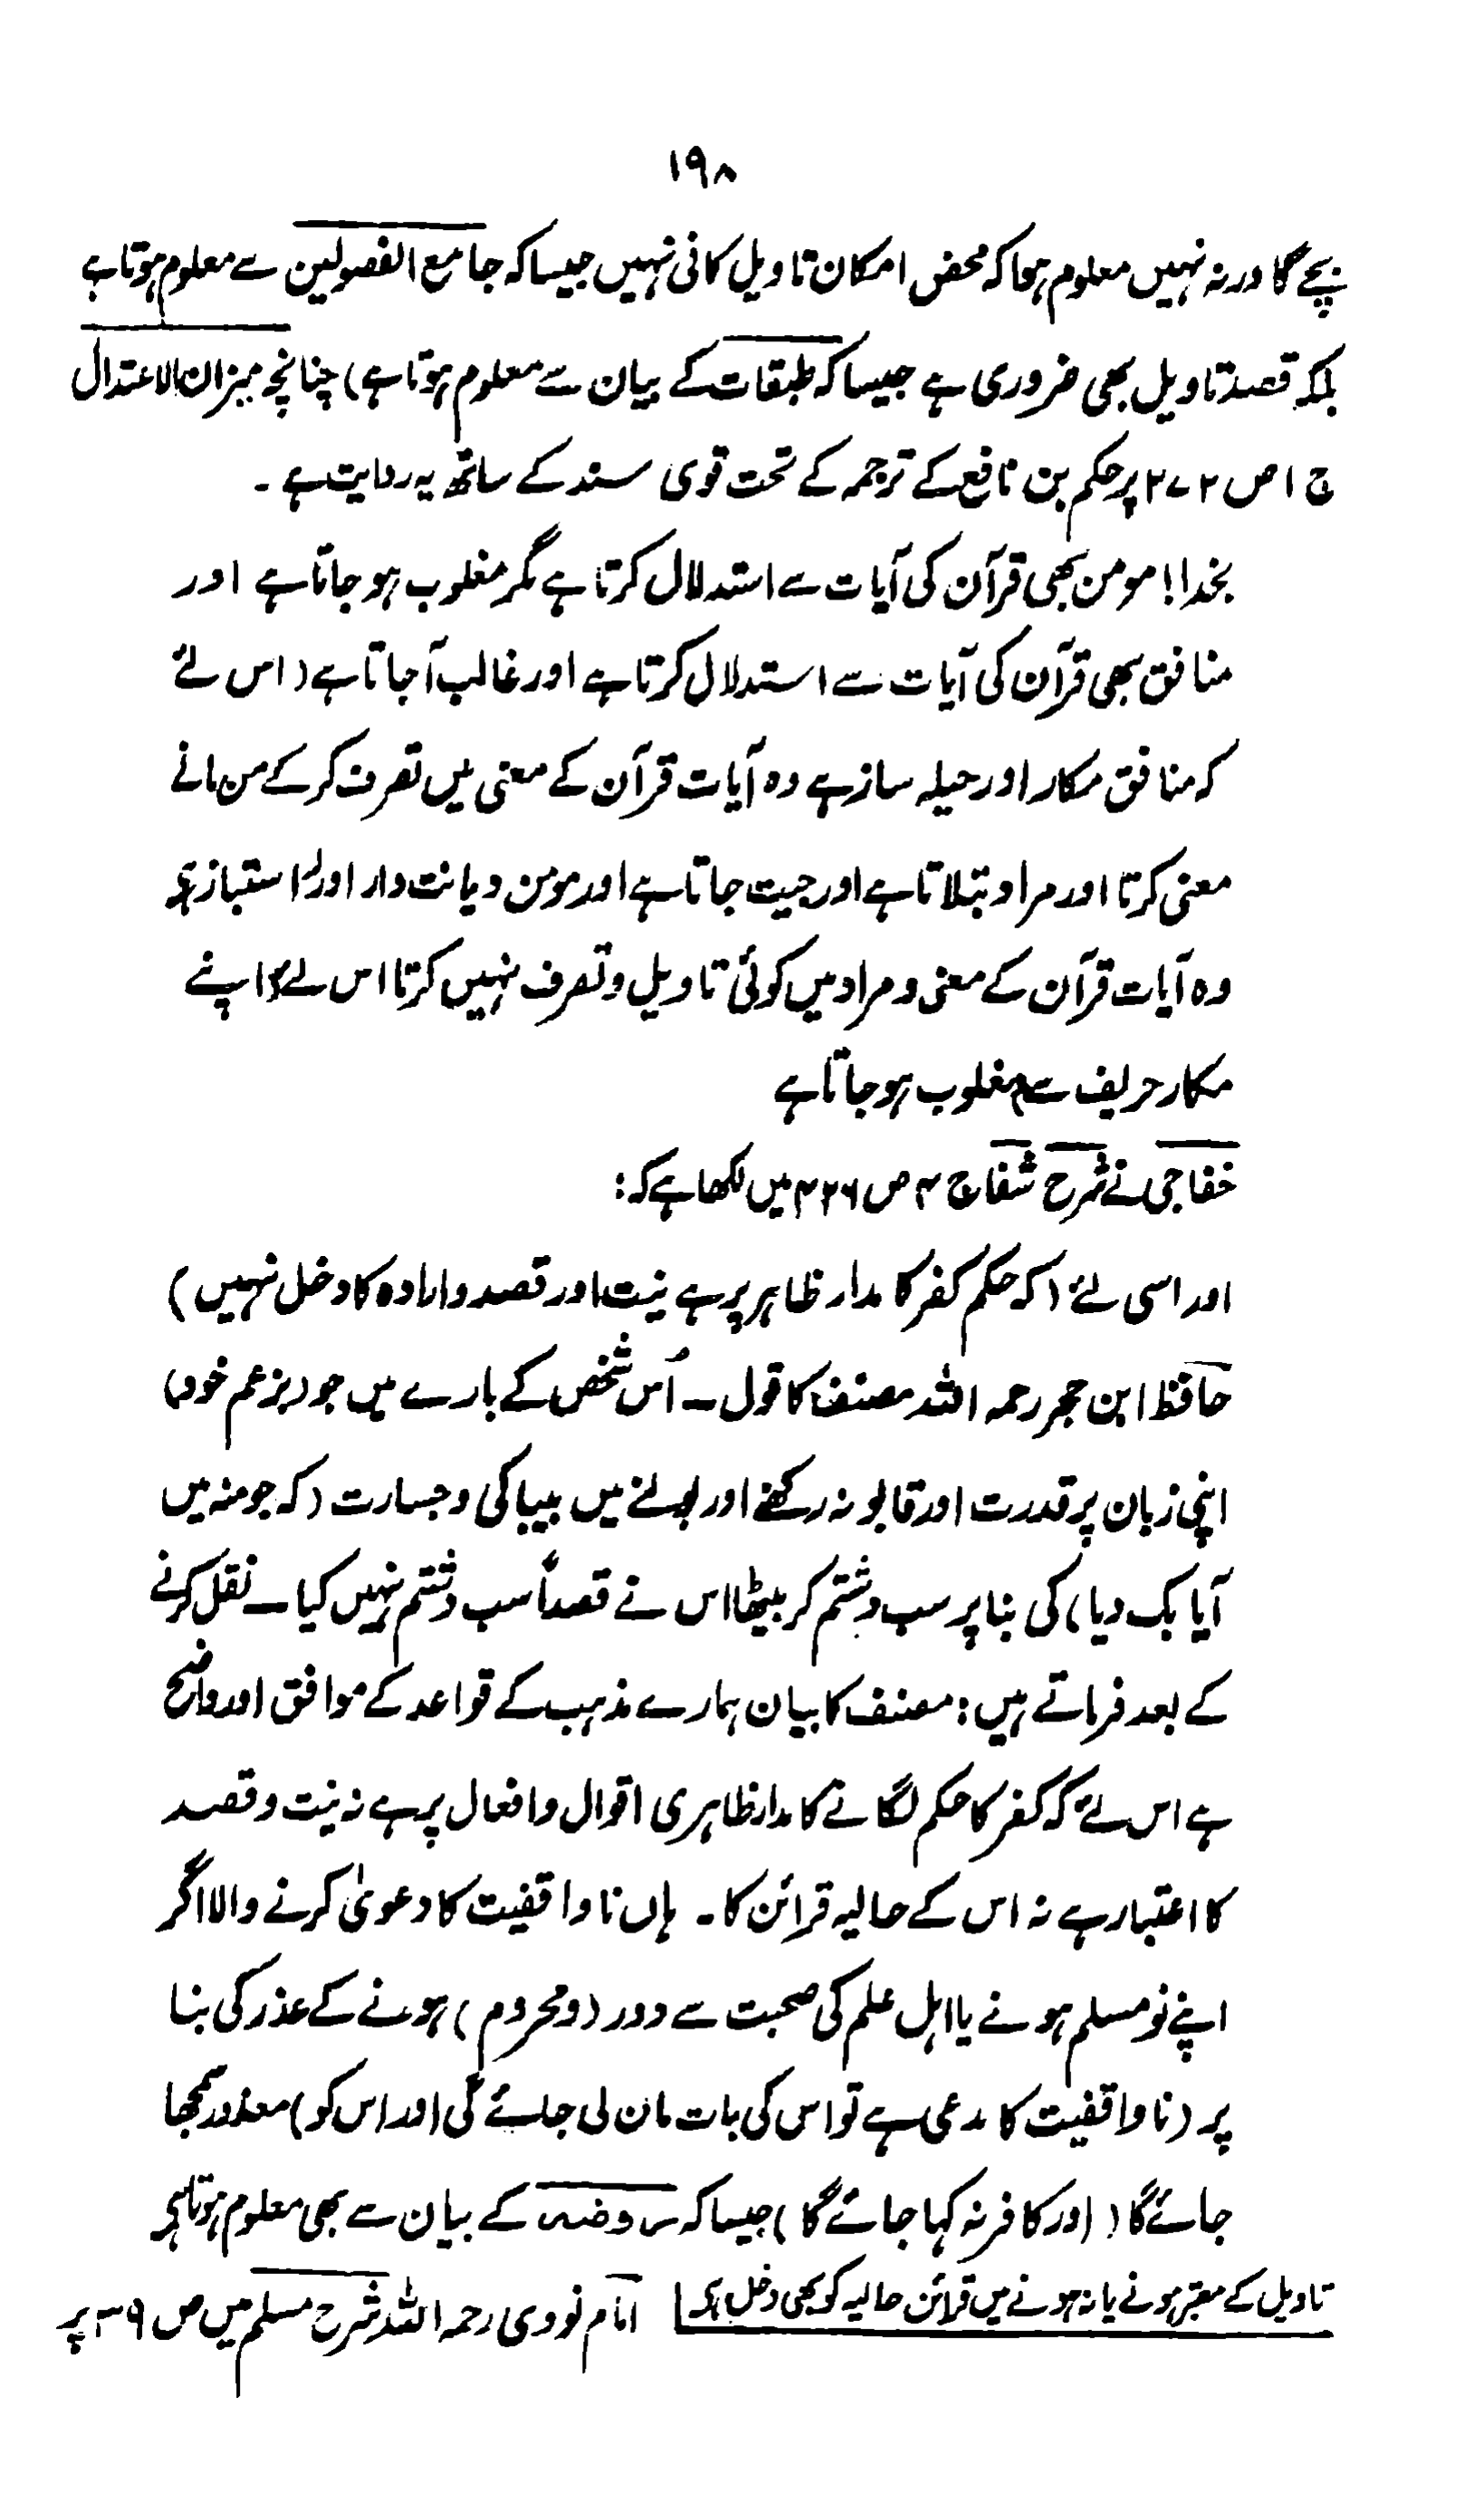 ۱۹۸
بچے گا ورنہ نہیں معلوم ہوا کہ محض امکان تاویل کافی نہیں جیسا کہ جامع الفصولین سے معلوم ہوتا ہے
بلکہ قصد تاویل بھی ضروری ہے جیسا کہ طبقات کے بیان سے معلوم ہوتا ہے) چنانچہ میزان الاعتدال
ج ۱ ص ۲۷۲ پر حکم بن نافع کے ترجمہ کے تحت قوی سند کے ساتھ یہ روایت ہے ۔
بخدا! مومن بھی قرآن کی آیات سے استدلال کرتا ہے مگر مغلوب ہو جاتا ہے اور
منافق بھی قرآن کی آیات سے استدلال کرتا ہے اور غالب آجاتا ہے (اس لئے
کہ منافق مکار اور حیلہ ساز ہے وہ آیات قرآن کے معنی میں تصرف کرکے من مانے
معنی کرتا اور مراد بتلاتا ہے اور جیت جاتا ہے اور مومن دیانت دار اور راستباز ہے
وہ آیات قرآن کے معنی و مراد میں کوئی تاویل و تصرف نہیں کرتا اس لئے اپنے
مکار حریف سے مغلوب ہو جاتا ہے
خفاجی نے شرح شفا ج ۴ ص ۴۲۶ میں لکھا ہے کہ :
اور اسی لئے (کہ حکم کفر کا مدار ظاہر پر ہے نیت اور قصد و ارادہ کا دخل نہیں)
حافظ ابن حجر رحمہ اللہ مصنف کا قول ـ اُس شخص کے بارے میں جو (بزعم خود)
اپنی زبان پر قدرت اور قابو نہ رکھنے اور بولنے میں بیباکی و جسارت (کہ جو منہ میں
آیا بک دیا) کی بنا پر سب و شتم کر بیٹھا اس نے قصداً سب و شتم نہیں کیا ـ نقل کرنے
کے بعد فرماتے ہیں : مصنف کا بیان ہمارے مذہب کے قواعد کے موافق اور واضح
ہے اس لئے کہ کفر کا حکم لگانے کا مدار ظاہری اقوال و افعال پر ہے نہ نیت و قصد
کا اعتبار ہے نہ اس کے حالیہ قرائن کا ۔ ہاں ناواقفیت کا دعویٰ کرنے والا اگر
اپنے نو مسلم ہونے یا اہل علم کی صحبت سے دور (و محروم) ہونے کے عذر کی بنا
پر (ناواقفیت کا مدعی ہے تو اس کی بات مان لی جائے گی اور اس کو) معذور سمجھا
جائے گا (اور کافر نہ کہا جائے گا) جیسا کہ روضہ کے بیان سے بھی معلوم ہوتا ہے
تاویل کے معتبر ہونے یا نہ ہونے میں قرائن حالیہ کو بھی دخل ہے | امام نووی رحمہ اللہ شرح مسلم میں ص ۳۹ پر